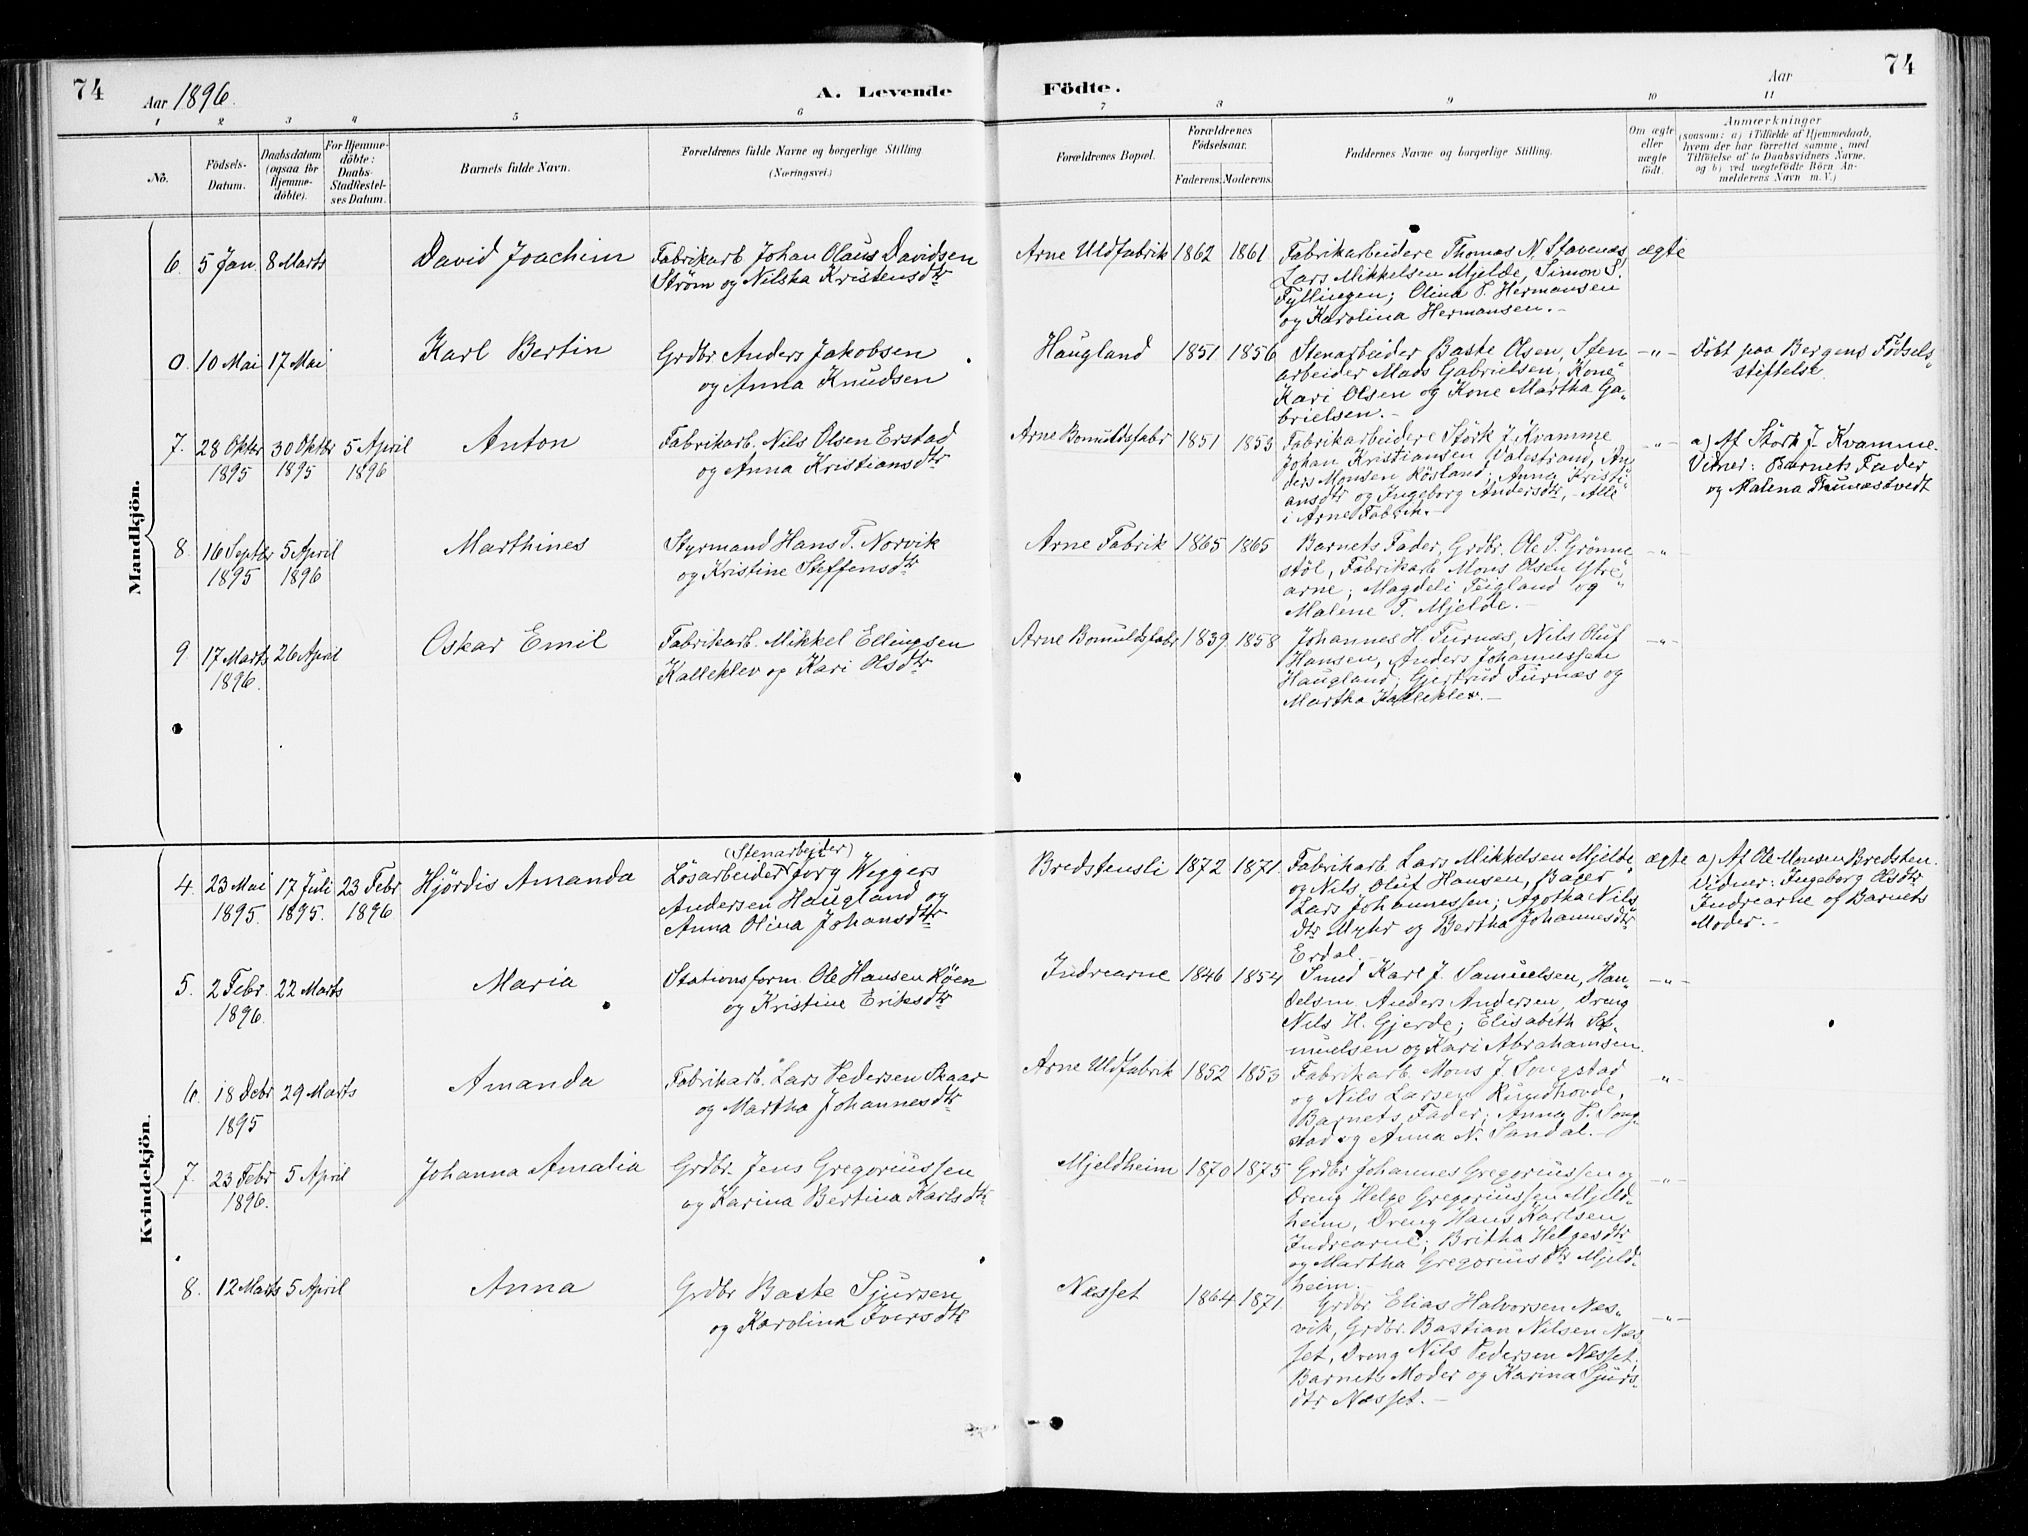 74
Aar 1896.
A. Levende
Födte.
Aar
74
1 2 3 4 5 6 7 8 9 10 11
No.
Födsels-Datum.
Daabsdatum (ogsaa for Hjemme-döbte).
For Hjemme-döbte: Daabs-Stadfæstelses Datum.
Barnets fulde Navn.
Forældrenes fulde Navne og borgerlige Stilling
(Næringsvei.)
Forældrenes Bopæl.
Forældrenes Födselsaar.
Faderens. Moderens.
Faddernes Navne og borgerlige Stilling.
Om ægte eller uægte födt.
Anmærkninger
(saasom: a) i Tilfælde af Hjemmedaab,
hvem der har forrettet samme, med
Tilföielse af to Daabsvidners Navne,
og b) ved uægtefödte Börn An-
melderens Navn m. V.)
Mandkjön.
6. 5 Jan 8 Marts David Joachim
Fabrikarb. Johan Olaus Davidsen
Strøm og Nilska Kristensdtr
Arne Uldfabrik 1862 1861
Fabrikarbeidere Thomas N. Stavenæs,
Lars Mikkelsen Mjelde, Simon S.
Fyllingen; Olina P. Hermansen
og Karolina Hermansen.-
ægte
0. 10 Mai 17 Mai Karl Bertin
Grdbr Anders Jakobsen
og Anna Knudsen
Haugland 1851 1856
Stenarbeider Baste Olsen, Sten
arbeider Mads Gabrielsen; Kone
Kari Olsen og Kone Martha Ga-
brielsen.-
-"-
Döbt paa Bergens Födsels
stiftelse.
7. 28 Oktbr 30 Oktbr 5 April Anton
1895 1895 1896
Fabrikarb. Nils Olsen Erstad
og Anna Kristiansdtr
Arne Bomuldsfabr 1851 1853
Fabrikarbeidere Störk J. Kvamme
Johan Kristiansen Valestrand, An
ders Monsen Rösland; Anna Kristi
ansdtr og Ingeborg Andersdtr, - Alle
i Arne Fabrik.-
-"-
a) Af Störk J. Kvamme.
Vidner: Barnets Fader
og Malena
8. 16 Septbr 5 April Marthines
1895 1896
Styrmand Hans T. Norvik
og Kristine Steffensdtr
Arne Fabrik 1865 1865
Barnets Fader, Grdbr. Ole T. Grønne
støl, Fabrikarb. Mons Olsen Ytre
arne; Magdeli Teigland og
Malene T. Mjelde.-
-"-
9. 17 Marts 26 April Oskar Emil
1896.
Fabrikarb. Mikkel Ellingsen
Kalleklev og Kari Olsdtr
Arne Bomuldsfabr 1839. 1858
Johannes H. Furnæs, Nils Oluf
Hansen, Anders Johannessen
Haugland; Gjertrud Furnæs og
Martha Kalleklev.-
-"-
Kvindekjön.
4. 23 Mai 17 Juli 23 Febr Hjördis Amanda
1895 1895. 1896
(Stenarbejder)
Løsarbeider Jørg Wiggers
Andersen Haugland og
Anna Olina Johansdtr
Bredstensli 1872 1871.
Fabrikarb. Lars Mikkelsen Mjelde
og Nils Oluf Hansen, Bager
Lars Johannessen; Agotha Nils
dtr Myhr og Bertha Johannesdtr
Erdal.-
ægte
a) Af Ole Monsen Bredsten.
Vidner: Ingeborg Olsdtr
Indrearne og Barnets
Moder.-
5. 2 Febr. 22 Marts Maria
1896.
Stationsform. Ole Hansen Røen
og Kristine Eriksdtr
Indrearne 1846 1854
Smed Karl J. Samuelsen, Han-
delsm. Anders Andersen, Dreng
Nils H. Gjerde; Elisabeth Sa-
muelsen og Kari Abrahamsen.
-"-
6. 18 Debr 29 Marts Amanda
1895
Fabrikarb. Lars Pedersen Skaar
og Martha Johannesdtr
Arne Uldfabrik 1852 1853
Fabrikarb. Mons J. Songstad
og Nils Larsen Rundhovde,
Barnets Fader; Anna P. Song
stad og Anna N. Sandal.-
-"-
7. 23 Febr 5 April Johanna Amalia
1896.
Grdbr. Jens Gregoriussen
og Karina Bertina Karlsdtr
Mjeldheim 1870 1875
Grdbr Johannes Gregoriussen og
Dreng Helge Gregoriussen Mjeld-
heim, Dreng Hans Karlsen
Indrearne; Britha Helgesdtr
og Martha Gregoriusdtr Mjeld-
heim.-
-"-
8. 12 Marts 5 April Anna
Grdbr Baste Sjursen
og Karolina Iversdtr
Næsset 1864 1871
Grdbr. Elias Halvorsen Næs-
vik, Grdbr. Bastian Nilsen Næs-
set, Dreng Nils Pedersen Næsset;
Barnets Moder og Karina Sjurs-
dtr Næsset.-
-"-